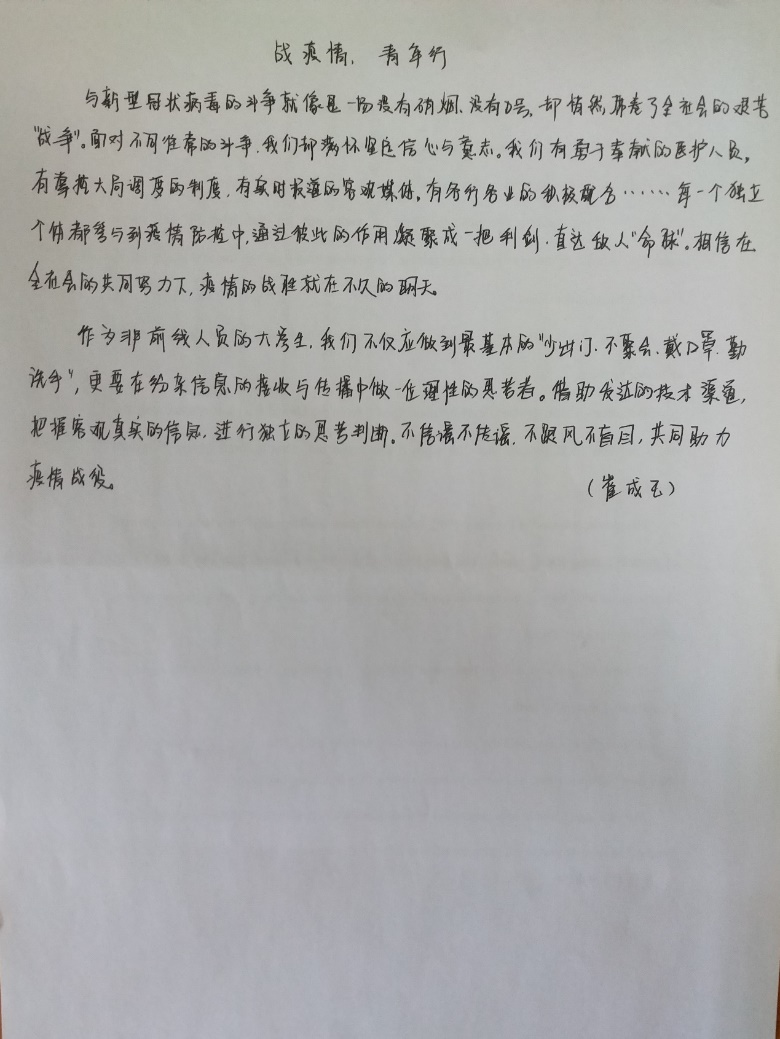 战疫情，青年行
与新型冠状病毒的斗争就像是一场没有硝烟、没有口号，却悄然席卷了全社会的艰苦
"战争"。面对不同往常的斗争，我们却满怀坚定信心与意志。我们有勇于奉献的医护人员，
有掌控大局调度的制度，有实时报道的客观媒体，有各行各业的积极配合……每一个独立
个体都参与到疫情防控中，通过彼此的作用凝聚成一把利剑，直达敌人"命脉"。相信在
全社会的共同努力下，疫情的战胜就在不久的明天。
作为非前线人员的大学生，我们不仅应做到最基本的"少出门、不聚会、戴口罩、勤
洗手"，更要在纷杂信息的接收与传播中做一位理性的思考者。借助发达的技术渠道，
把握客观真实的信息，进行独立的思考判断。不信谣不传谣，不跟风不盲目，共同助力
疫情战役。
（崔成玉）